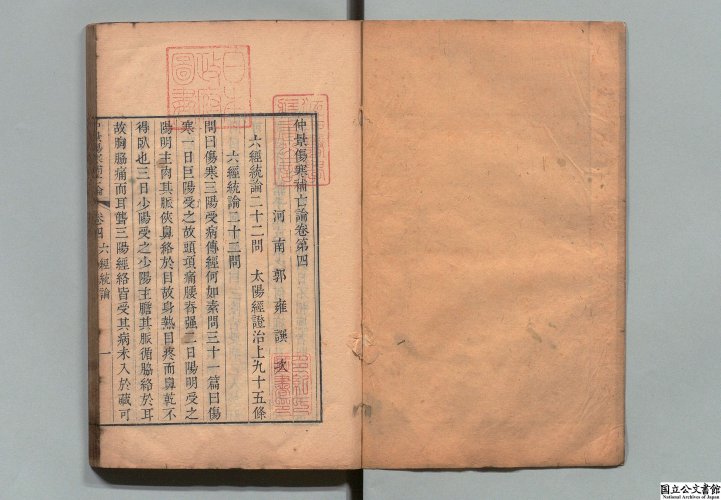 仲景傷寒補亡論卷第四
河南郭雍撰次
六經統論二十二問　太陽經證治上九十五條
六經統論二十二問
問曰傷寒三陽受病傳經何如素問三十一篇曰傷
寒一日巨陽受之故頭項痛腰脊强二日陽明受之
陽明主肉其脈俠鼻絡於目故身熱目疼而鼻乾不
得臥也三日少陽受之少陽主膽其脈循脇絡於耳
故胸脇痛而耳聾三陽經絡皆受其病未入於藏可
卷四　六經統論　一
日本政府圖書
国立公文書館
National Archives of Japan